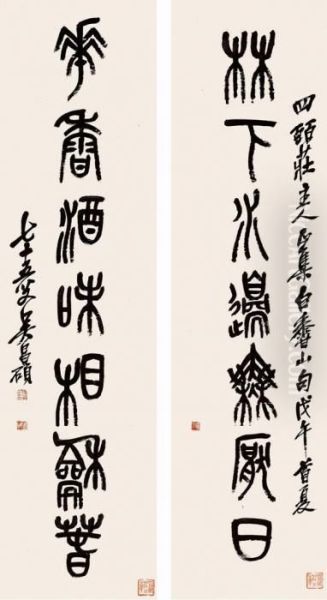 四莊主人正集白香山句戊午首夏
林下水邊無厭日
華香酒味相龢春
七十五叟吳昌碩